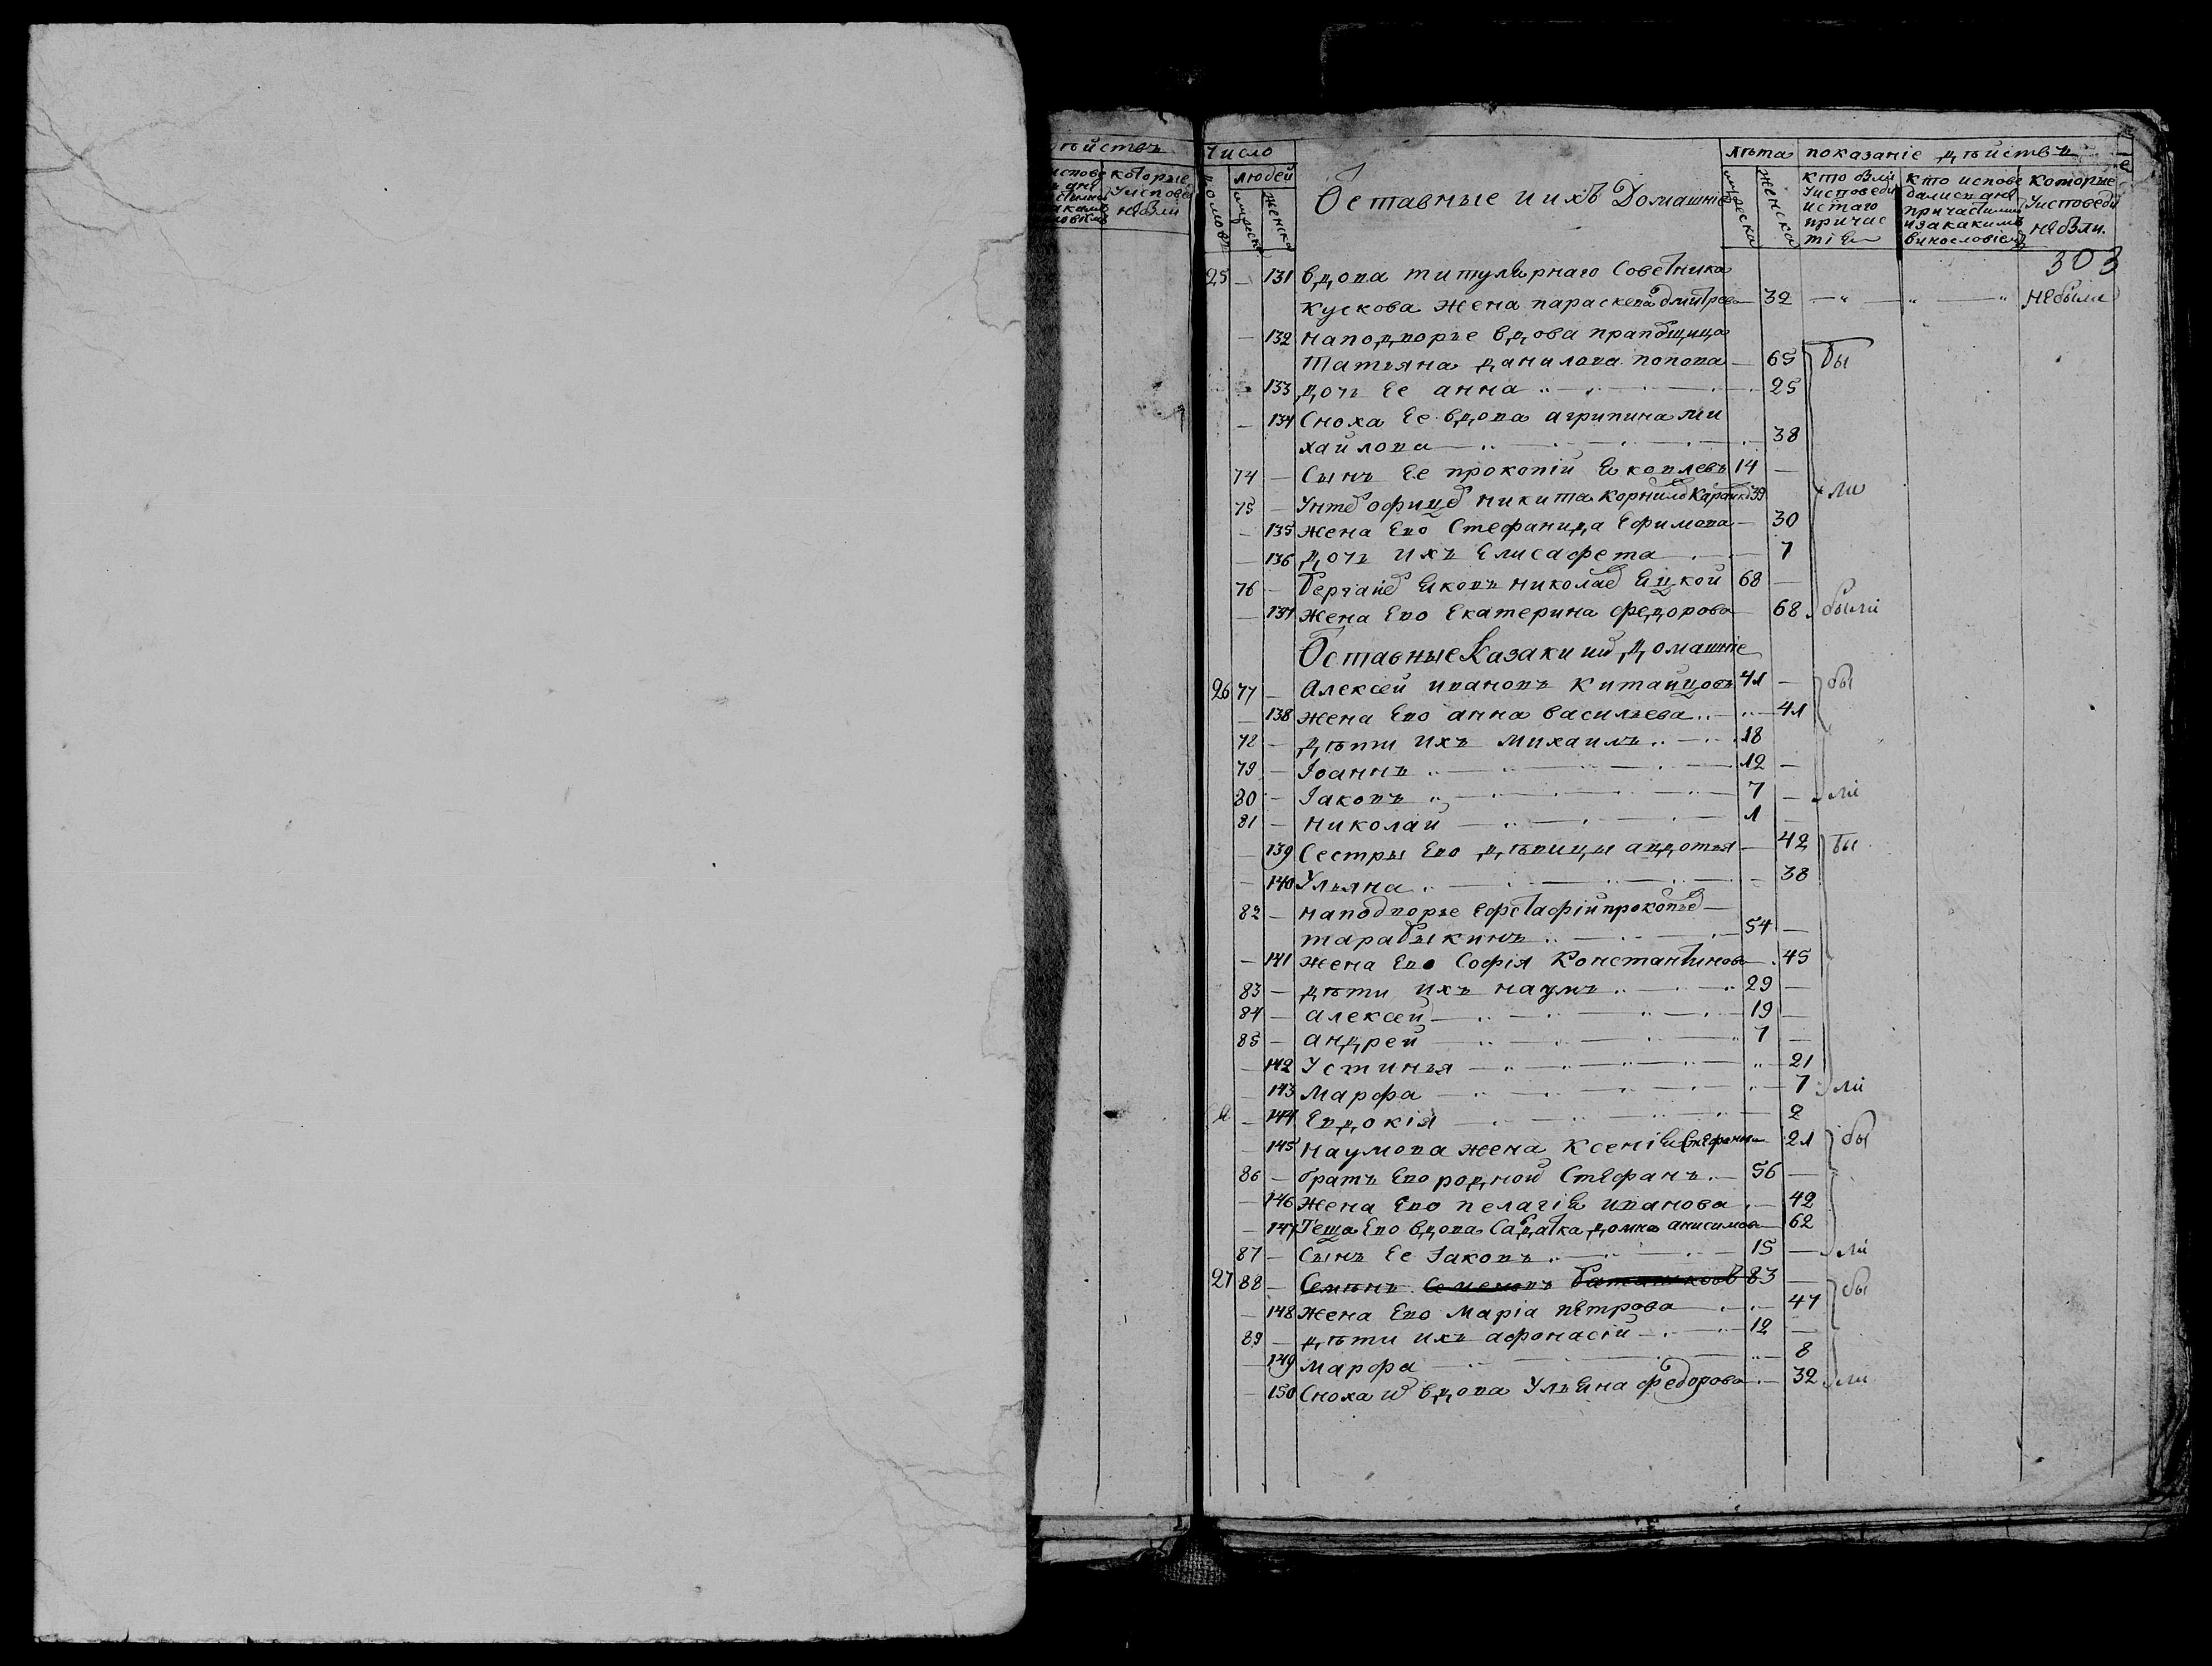 ѣйствъ
которые
Уиспове
небᲂли
Число
людей
домовъ
мужеска
женска
Оставные и ихъ Домашніе
лѣта
мужеска
женска
показаніе дѣйствъ
кто были
Уисповеди
истаго
причас
тія
кто испове
дались а не
причастились
изакакимъ
винословіемъ
которые
Уисповеди
небыли.
303
25 — 131 вдова титулярнаго Советника
Кускова жена параскева дмитрева — 32 — „ — „ — „ небыла
— 132 наподворье вдова прапорщица
Татьяна данилова попова — 65 бы
133 дочь Ее анна — 25
— 134 Сноха Ее вдова агрипина ми
хайлова — 38
74 — Сынъ Ее прокопій Яковлевъ 14 —
75 — Унтеръ офицеръ никита Корнилов 39 ли
— 135 жена Его Стефанида Ефимова — 30
— 136 дочь ихъ Елисафета — 7
76 — Яковъ николаев 68 —
— 137 жена Его Екатерина федорова 68 были
Оставные Казаки их домашніе
26 77 — Алексей ивановъ Китайцовъ 41 — бы
— 138 жена Его анна васильева — 41
78 — дѣти ихъ михаилъ 18
79 — Іоаннъ 12 —
80 — Іаковъ 7 — ли
81 — николай 1 —
— 139 Сестры Его дѣвицы авдотья — 42 бы
— 140 Ульяна — 38
82 — наподворье Ефстафій прокопьев —
тарабыкинъ 54 —
— 141 жена Его Софія Константинова 45
83 — дѣти ихъ наумъ 29 —
84 — алексей 19 —
85 — андрей 7 —
— 142 Устинья 21
143 Марфа 7 ли
— 144 Евдокія 2
— 145 наумова жена Ксенія Стефанова 21 бы
86 — братъ Его родной Стефанъ 56 —
— 146 жена Его пелагія иванова 42
— 147 Теща Его вдова Салдатка домна анисимова 62
87 — Сынъ Ее Іаковъ 15 — ли
27 88 — Семѣнъ Семеновъ 83 — бы
— 148 жена Его Маріа петрова 47
89 — дѣти ихъ афонасій 12 —
— 149 марфа 8
— 150 Сноха их вдова Ульяна федорова 32 ли